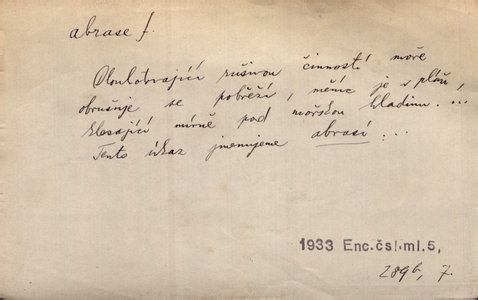 abrase f.
Dlouhotrvající rušivou činností moře
obrušuje se pobřeží, měníc je v pláň,
klesající mírně pod mořskou hladinu. ...
Tento úkaz jmenujeme abrasí ...
1933 Enc.čsl.ml.5,
289b, 7.